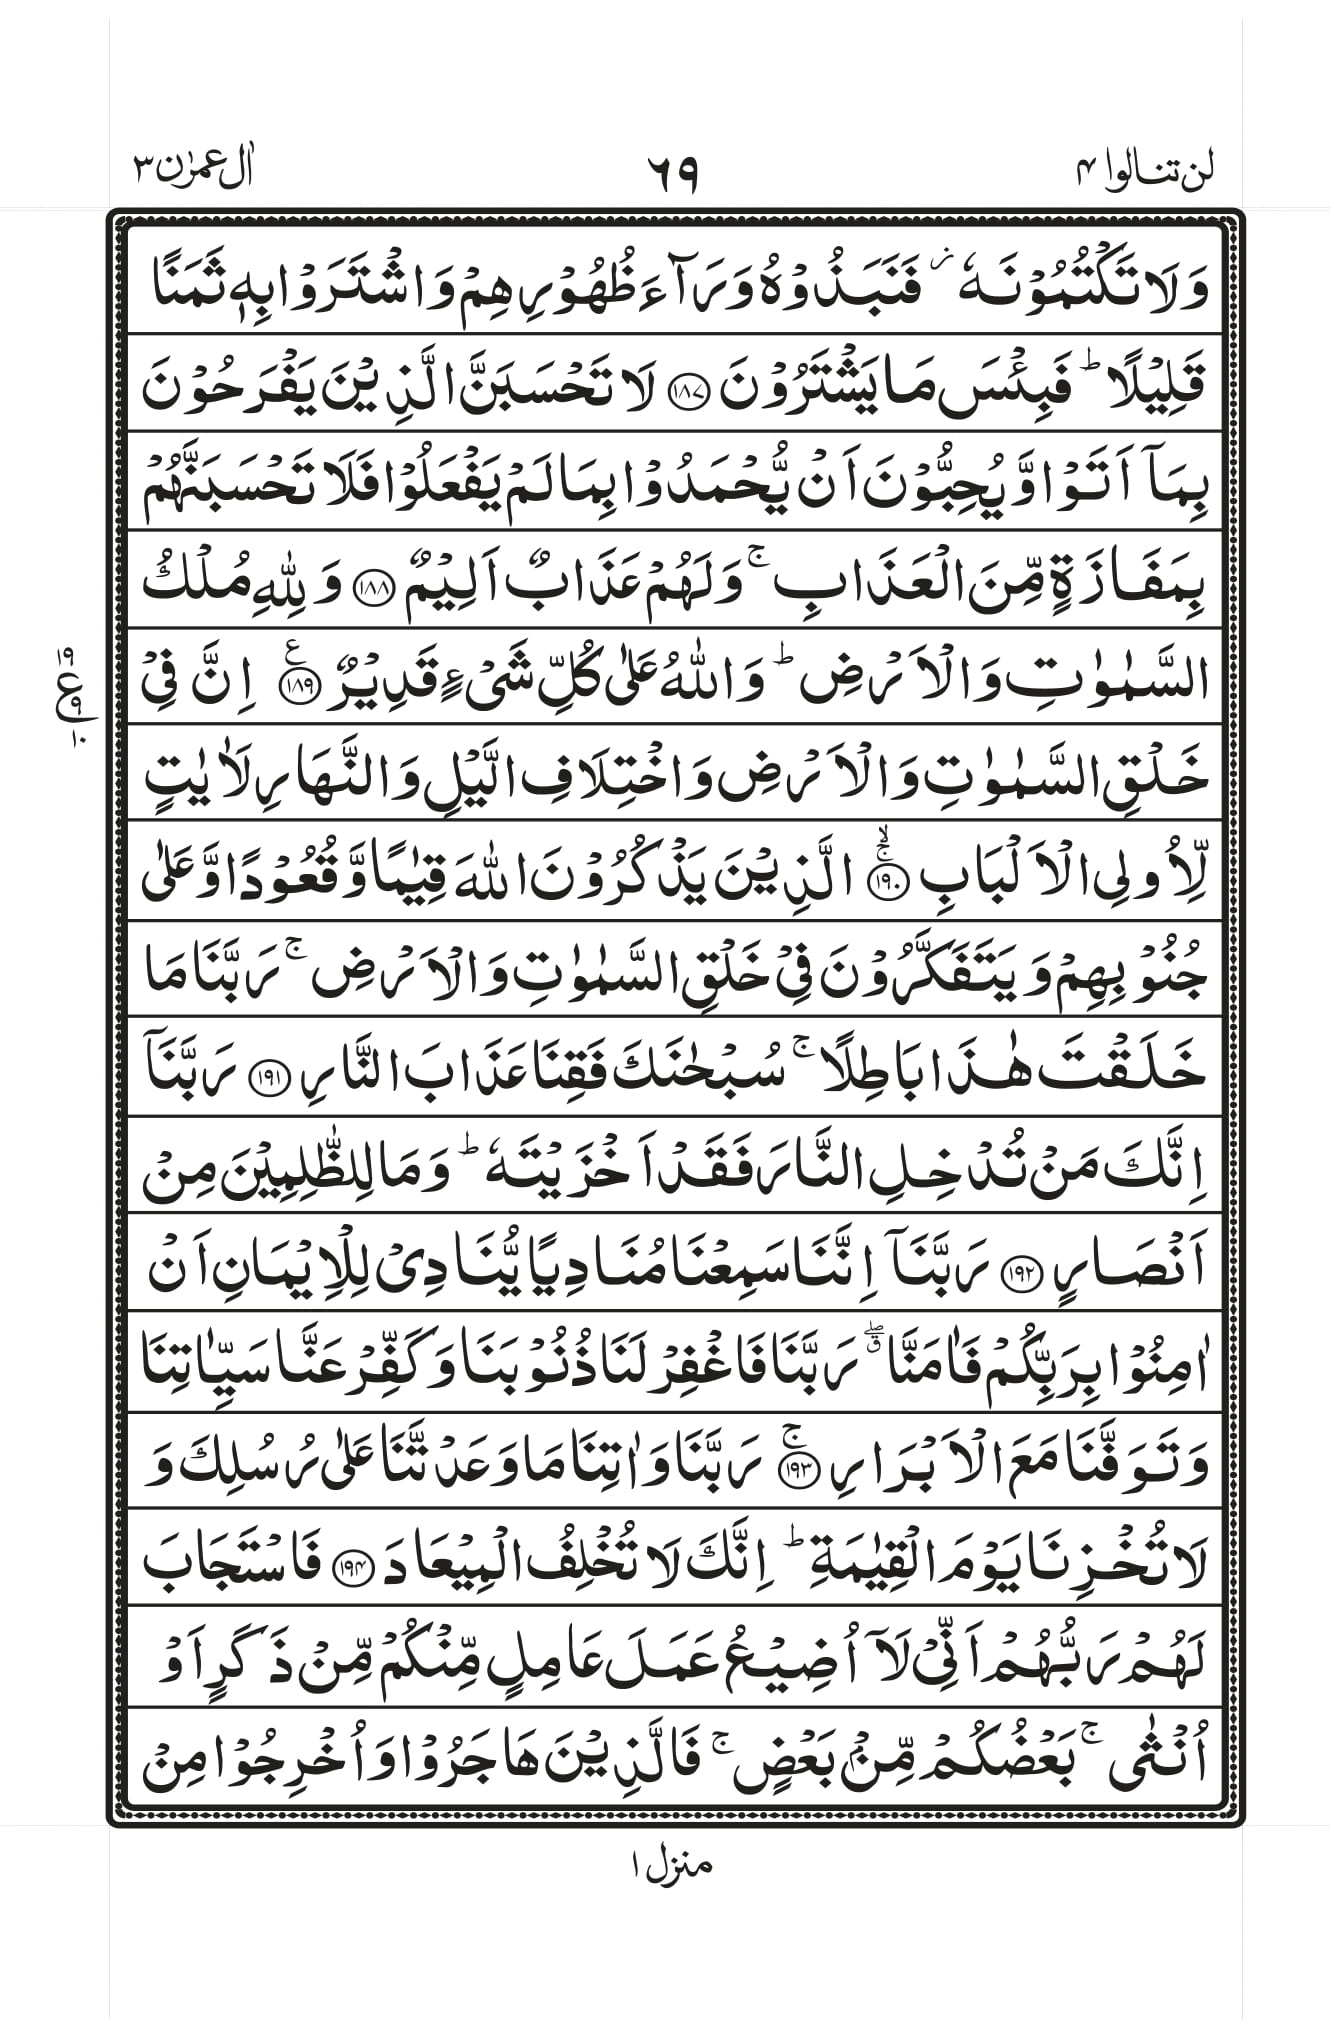 لن تنالوا ۴
٦٩
اٰل عمرٰن ۳
وَلَا تَكْتُمُوْنَهٗ ؗ فَنَبَذُوْهُ وَرَآءَ ظُهُوْرِهِمْ وَاشْتَرَوْا بِهٖ ثَمَنًا
قَلِيْلًا ؕ فَبِئْسَ مَا يَشْتَرُوْنَ ۝۱۸۷ لَا تَحْسَبَنَّ الَّذِيْنَ يَفْرَحُوْنَ
بِمَآ اَتَوْا وَّيُحِبُّوْنَ اَنْ يُّحْمَدُوْا بِمَا لَمْ يَفْعَلُوْا فَلَا تَحْسَبَنَّهُمْ
بِمَفَازَةٍ مِّنَ الْعَذَابِ ۚ وَلَهُمْ عَذَابٌ اَلِيْمٌ ۝۱۸۸ وَلِلّٰهِ مُلْكُ
السَّمٰوٰتِ وَالْاَرْضِ ؕ وَاللّٰهُ عَلٰى كُلِّ شَيْءٍ قَدِيْرٌ ۝۱۸۹ ع اِنَّ فِيْ
۱۹
ع
۹
۱۰
خَلْقِ السَّمٰوٰتِ وَالْاَرْضِ وَاخْتِلَافِ الَّيْلِ وَالنَّهَارِ لَاٰيٰتٍ
لِّاُولِي الْاَلْبَابِ ۝۱۹۰ ۚۙ الَّذِيْنَ يَذْكُرُوْنَ اللّٰهَ قِيٰمًا وَّقُعُوْدًا وَّعَلٰى
جُنُوْبِهِمْ وَيَتَفَكَّرُوْنَ فِيْ خَلْقِ السَّمٰوٰتِ وَالْاَرْضِ ۚ رَبَّنَا مَا
خَلَقْتَ هٰذَا بَاطِلًا ۚ سُبْحٰنَكَ فَقِنَا عَذَابَ النَّارِ ۝۱۹۱ رَبَّنَآ
اِنَّكَ مَنْ تُدْخِلِ النَّارَ فَقَدْ اَخْزَيْتَهٗ ؕ وَمَا لِلظّٰلِمِيْنَ مِنْ
اَنْصَارٍ ۝۱۹۲ رَبَّنَآ اِنَّنَا سَمِعْنَا مُنَادِيًا يُّنَادِيْ لِلْاِيْمَانِ اَنْ
اٰمِنُوْا بِرَبِّكُمْ فَاٰمَنَّا ۖق رَبَّنَا فَاغْفِرْ لَنَا ذُنُوْبَنَا وَكَفِّرْ عَنَّا سَيِّاٰتِنَا
وَتَوَفَّنَا مَعَ الْاَبْرَارِ ۝۱۹۳ ۚ رَبَّنَا وَاٰتِنَا مَا وَعَدْتَّنَا عَلٰى رُسُلِكَ وَ
لَا تُخْزِنَا يَوْمَ الْقِيٰمَةِ ؕ اِنَّكَ لَا تُخْلِفُ الْمِيْعَادَ ۝۱۹۴ فَاسْتَجَابَ
لَهُمْ رَبُّهُمْ اَنِّيْ لَآ اُضِيْعُ عَمَلَ عَامِلٍ مِّنْكُمْ مِّنْ ذَكَرٍ اَوْ
اُنْثٰى ۚ بَعْضُكُمْ مِّنْۢ بَعْضٍ ۚ فَالَّذِيْنَ هَاجَرُوْا وَاُخْرِجُوْا مِنْ
منزل ۱